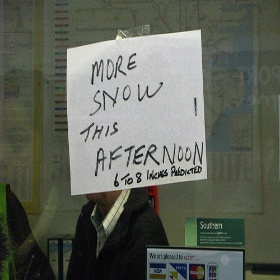 MORE
SNOW
THIS
AFTERNOON
6 TO 8 INCHES PREDICTED
Southern
We are pleased to accept
VISA